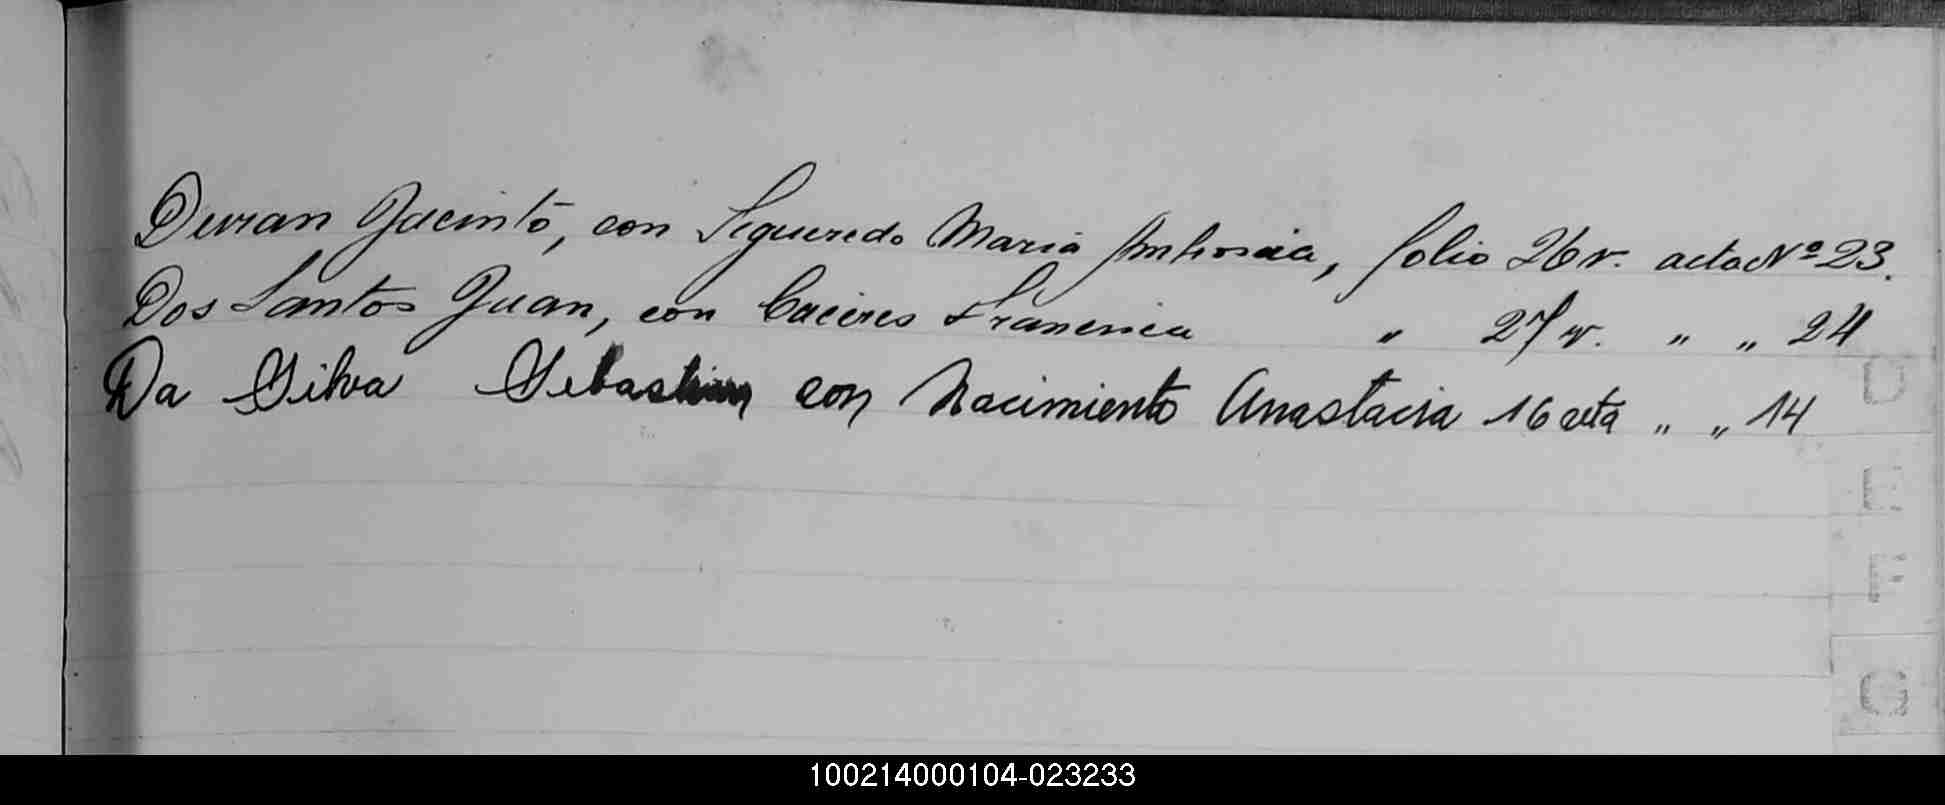 Duran Jacinto, con Sigueredo Maria Ambrosia, folio 26 v. acta Nº 23.
Dos Santos Juan, con Caceres Francisca „ 27 v. „ „ 24
Da Silva Sebastian con Nacimiento Anastacia 16 acta „ „ 14
D
E
F
G
100214000104-023233